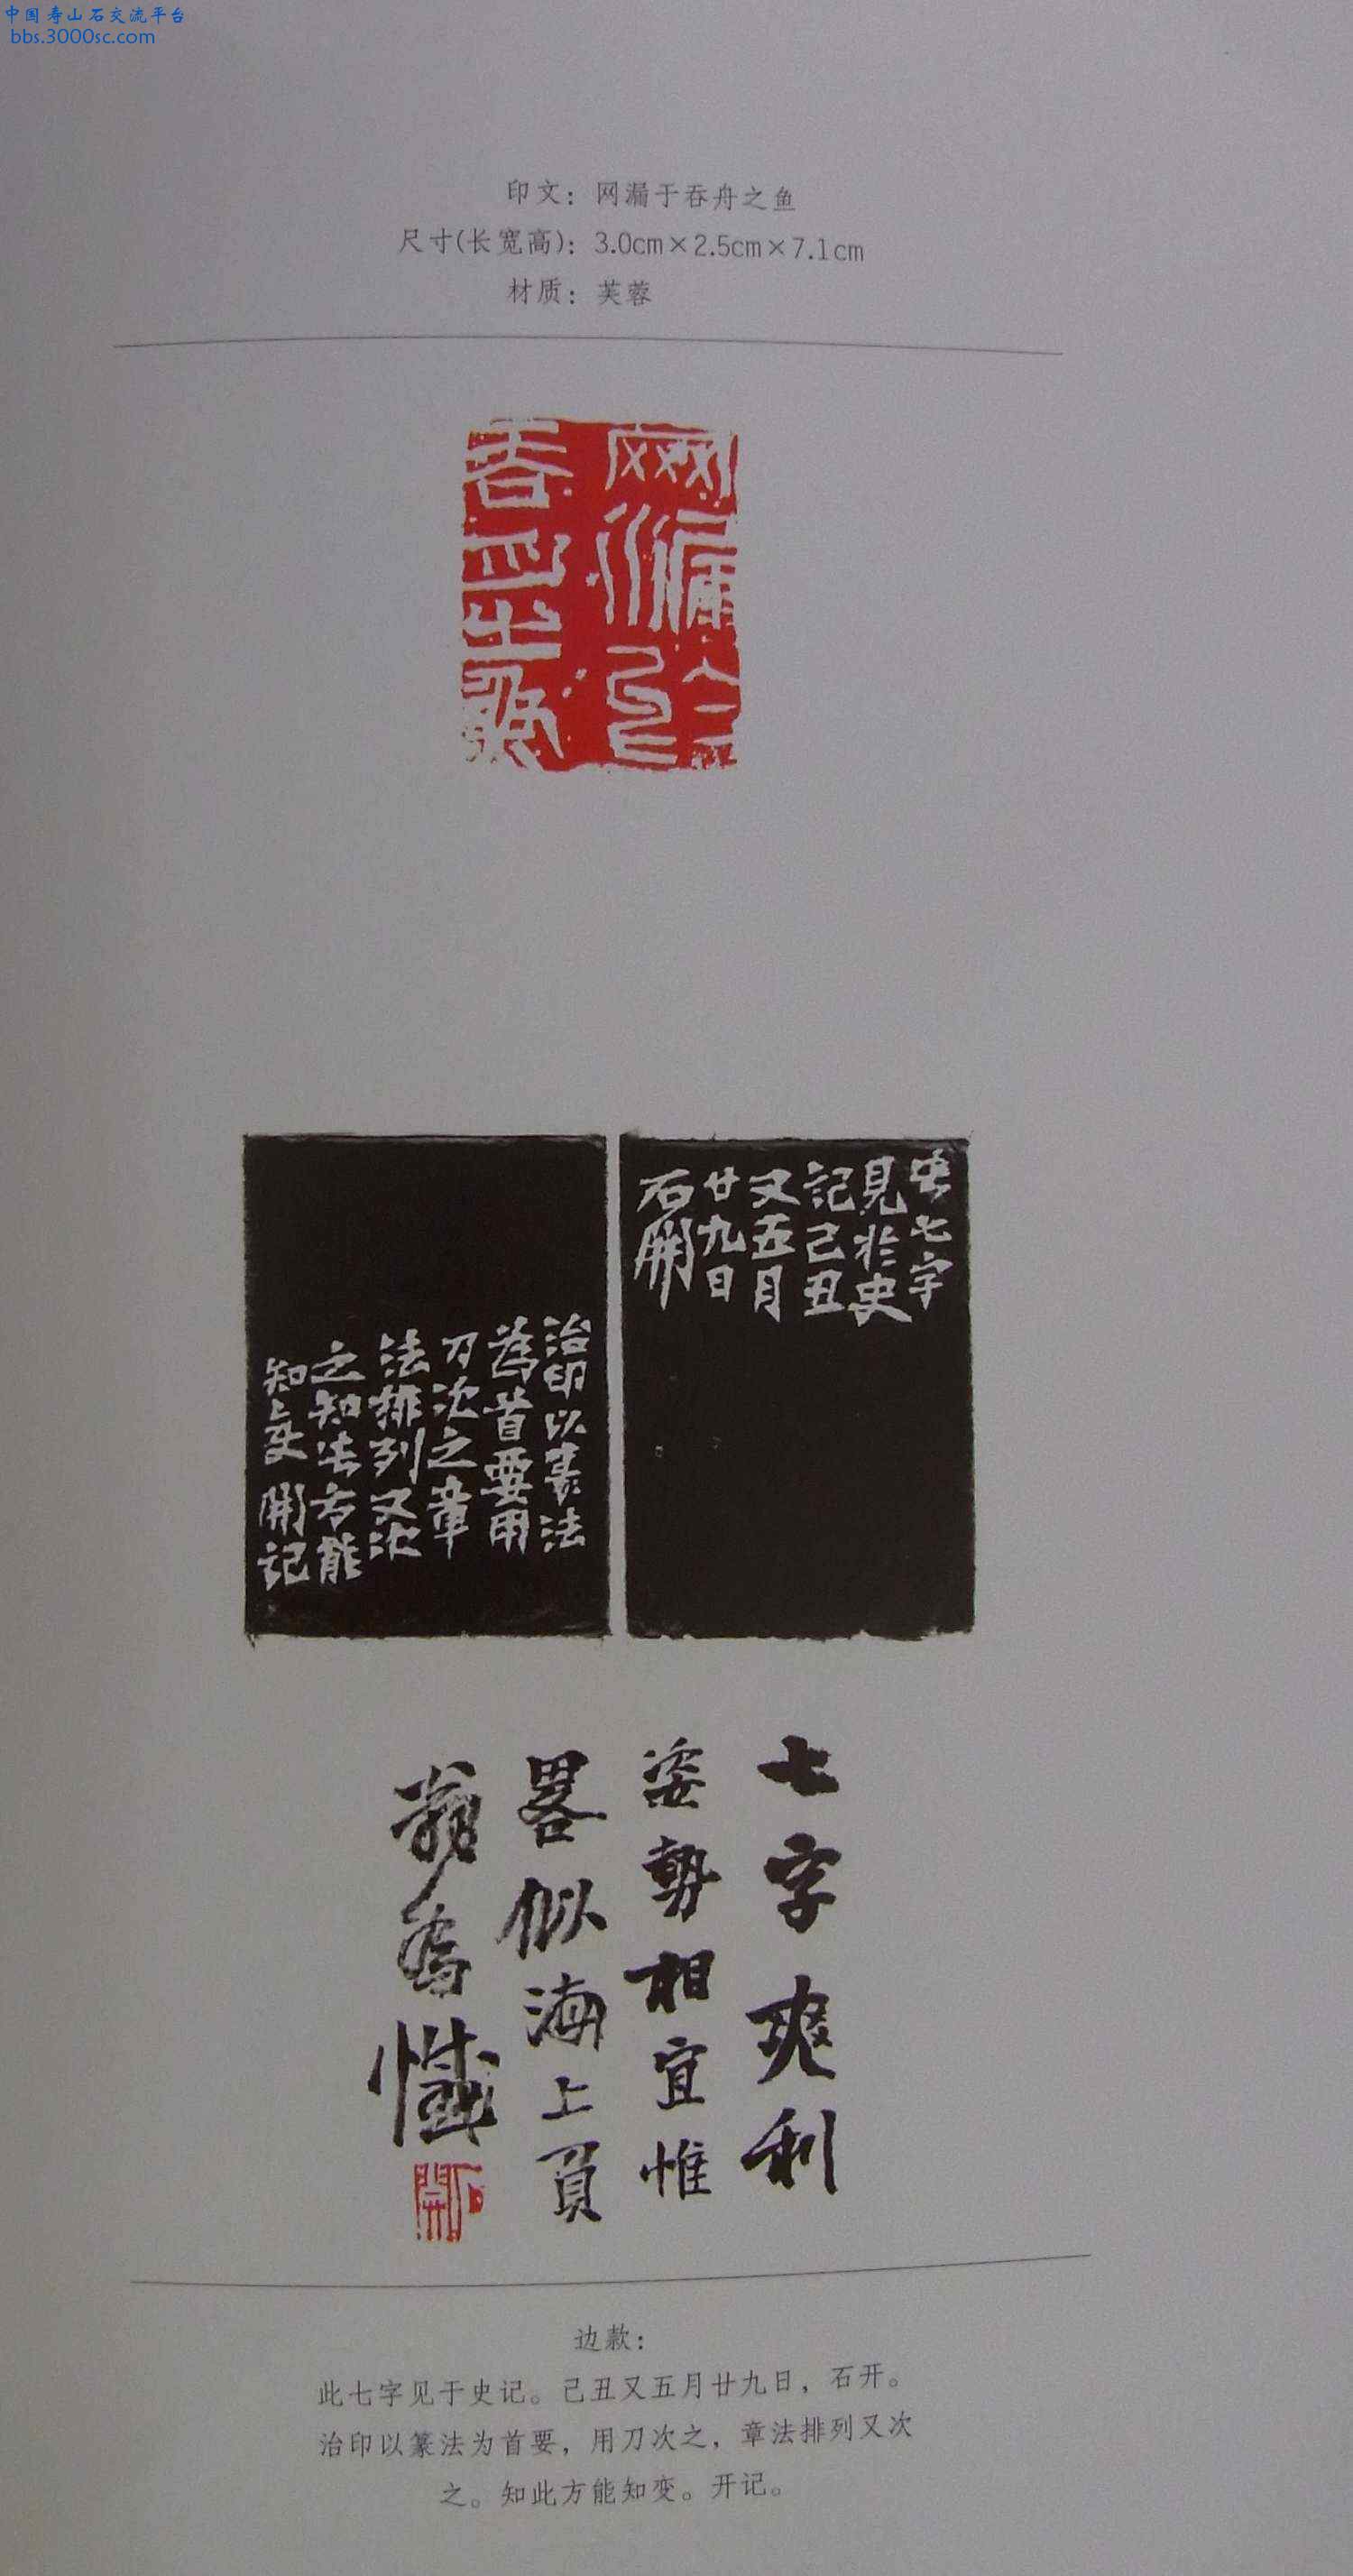 中国寿山石交流平台
bbs.3000sc.com
印文：网漏于吞舟之鱼
尺寸(长宽高)：3.0cm×2.5cm×7.1cm
材质：芙蓉
网漏於
吞舟之魚
此七字
見於史
記己丑
又五月
廿九日
石開
治印以篆法
為首要用
刀次之章
法排列又次
之知此方能
知变開记
七字爽利
姿勢相宜惟
畧似海上頁
翁為憾
石開
边款：
此七字见于史记。己丑又五月廿九日，石开。
治印以篆法为首要，用刀次之，章法排列又次
之。知此方能知变。开记。